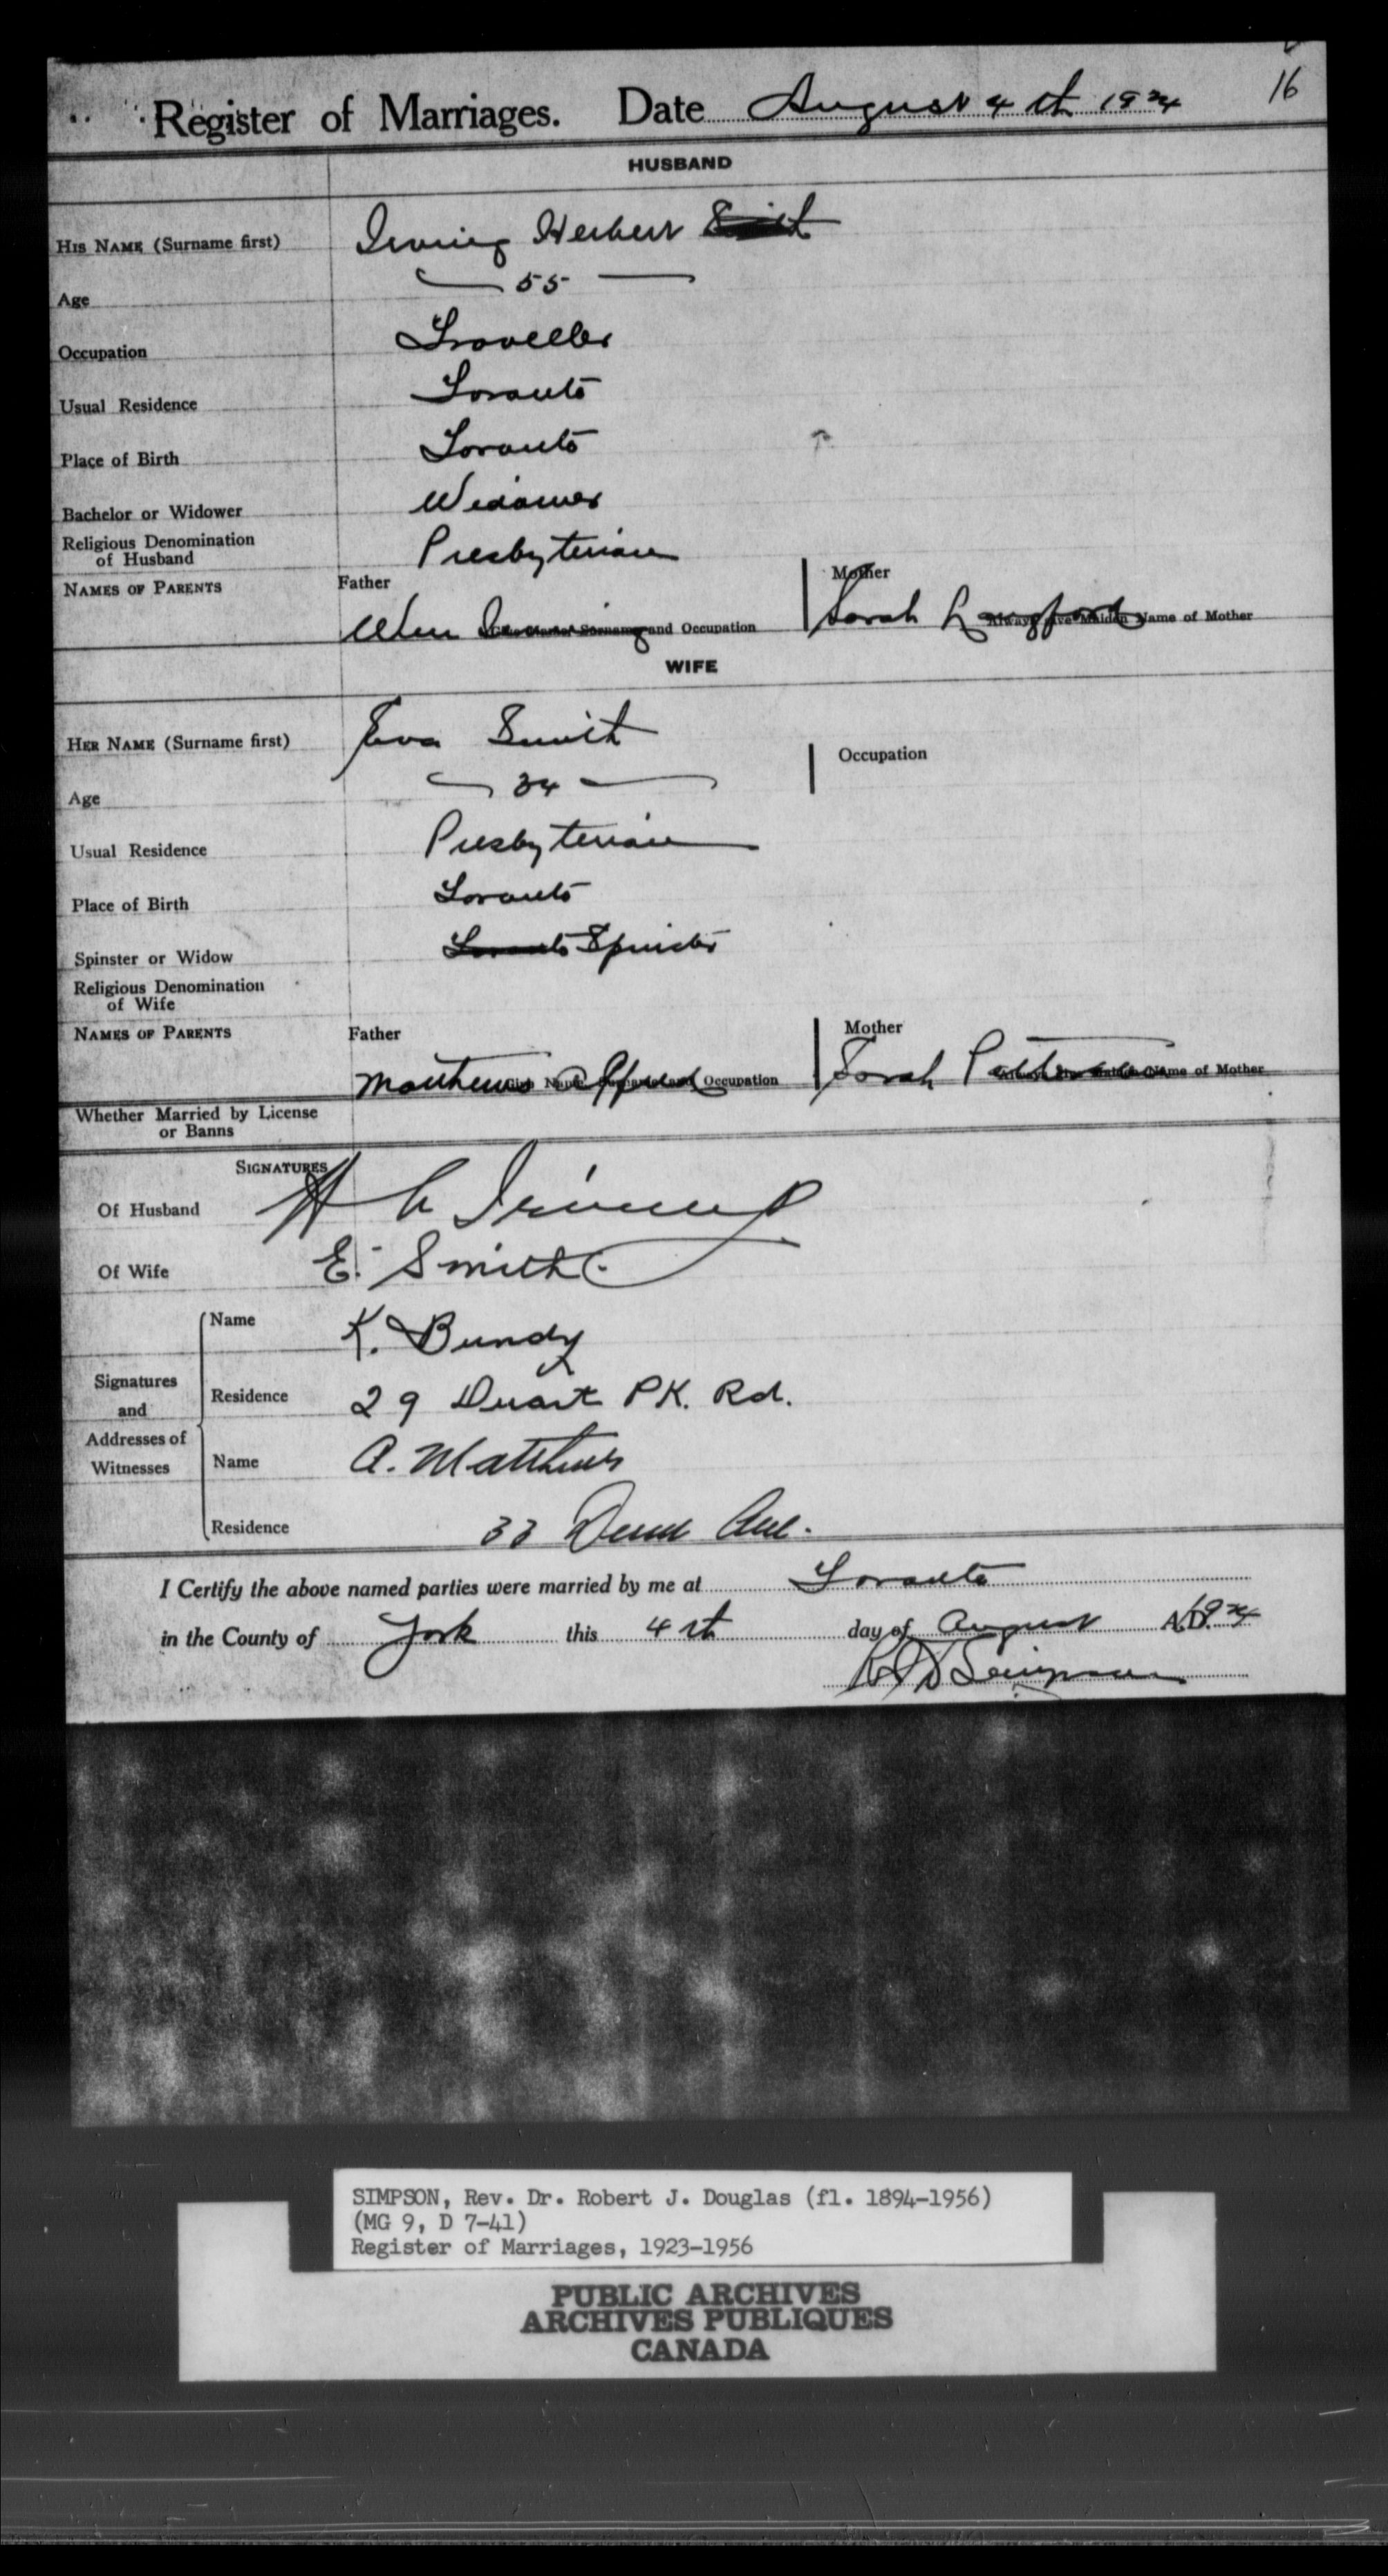 16
Register of Marriages. Date August 4th 1924
HUSBAND
HIS NAME (Surname first) Irving Herbert
Age 55
Occupation Traveller
Usual Residence Toronto
Place of Birth Toronto
Bachelor or Widower Widower
Religious Denomination of Husband Presbyterian
NAMES OF PARENTS Father Mother
Wm Irving and Occupation Sarah Langford Always give Maiden Name of Mother
WIFE
HER NAME (Surname first) Eva Smith
Occupation
Age 34
Usual Residence Presbyterian
Place of Birth Toronto
Spinster or Widow Toronto Spinster
Religious Denomination of Wife
NAMES OF PARENTS Father Mother
Matthews Alfred Occupation Sarah Patterson Name of Mother
Whether Married by License or Banns
SIGNATURES
Of Husband H Irving
Of Wife E. Smith
Signatures and Addresses of Witnesses
Name K. Bundy
Residence 29 Duart PK. Rd.
Name A. Matthews
Residence 33 Ave.
I Certify the above named parties were married by me at Toronto
in the County of York this 4th day of August A.D. 1924
Simpson
SIMPSON, Rev. Dr. Robert J. Douglas (fl. 1894-1956)
(MG 9, D 7-41)
Register of Marriages, 1923-1956
PUBLIC ARCHIVES
ARCHIVES PUBLIQUES
CANADA